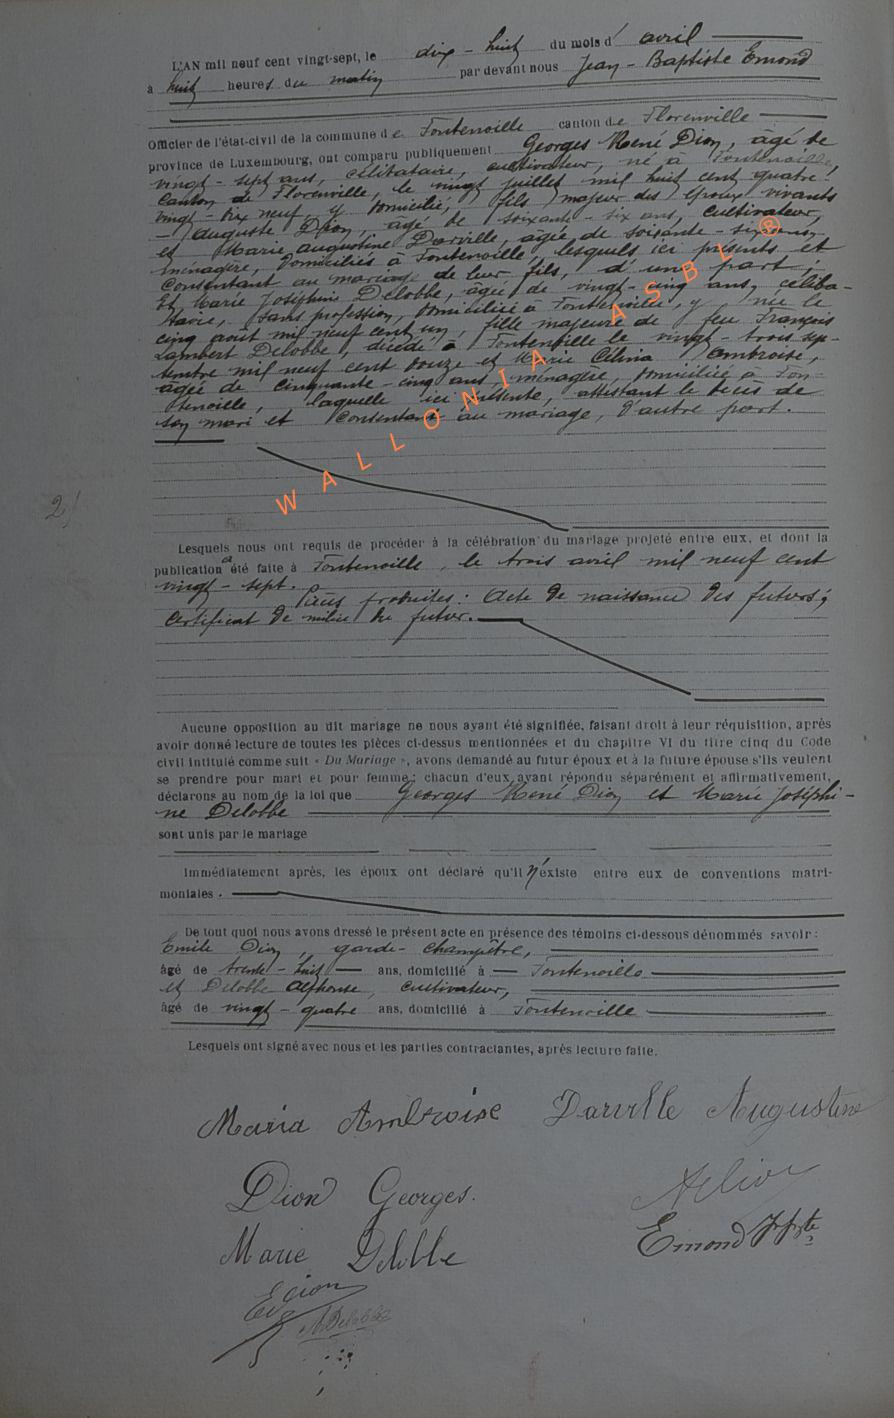 L'AN mil neuf cent vingt-sept, le dix-huit du mois d' avril
à huit heures du matin par devant nous Jean-Baptiste Emond
Officier de l'état-civil de la commune de Fontenoille canton de Florenville
province de Luxembourg, ont comparu publiquement Georges René Dion, âgé de
vingt-sept ans, célibataire, cultivateur, né à Fontenoille,
canton de Florenville, le vingt juillet mil huit cent quatre-
vingt-dix neuf, y domicilié, fils majeur des époux vivants
- Auguste Dion, âgé de soixante-six ans, cultivateur,
et Marie Augustine Darville, âgée de soixante-six ans,
ménagère, domiciliés à Fontenoille, lesquels ici présents et
consentant au mariage de leur fils, d'une part;
Et Marie Joséphine Delobbe, âgée de vingt-cinq ans, céliba-
taire, sans profession, domiciliée à Fontenoille, y née le
cinq août mil neuf cent un, fille majeure de feu François
Lambert Delobbe, décédé à Fontenoille le vingt-trois sep-
tembre mil neuf cent douze et Marie Célinia Ambroise,
âgée de cinquante-cinq ans, ménagère, domiciliée à Fon-
tenoille, laquelle ici présente, attestant le décès de
son mari et consentant au mariage, d'autre part.
WALLONIA ASBL ®
2/
Lesquels nous ont requis de procéder à la célébration du mariage projeté entre eux, et dont la
publication a été faite à Fontenoille, le trois avril mil neuf cent
vingt-sept.
Pièces produites: Acte de naissance des futurs;
certificat de milice du futur.
Aucune opposition au dit mariage ne nous ayant été signifiée, faisant droit à leur réquisition, après
avoir donné lecture de toutes les pièces ci-dessus mentionnées et du chapitre VI du titre cinq du Code
civil intitulé comme suit « Du Mariage », avons demandé au futur époux et à la future épouse s'ils veulent
se prendre pour mari et pour femme; chacun d'eux ayant répondu séparément et affirmativement,
déclarons au nom de la loi que Georges René Dion et Marie Joséphi-
ne Delobbe
sont unis par le mariage
Immédiatement après, les époux ont déclaré qu'il n'existe entre eux de conventions matri-
moniales.
De tout quoi nous avons dressé le présent acte en présence des témoins ci-dessous dénommés savoir:
Emile Dion, garde-champêtre,
âgé de trente-huit ans, domicilié à Fontenoille
et Delobbe Alphonse, cultivateur,
âgé de vingt-quatre ans, domicilié à Fontenoille
Lesquels ont signé avec nous et les parties contractantes, après lecture faite.
Maria Ambroise Darville Augustine
Dion Georges.
Marie Delobbe Emond J Bte
EDion
A Delobbe